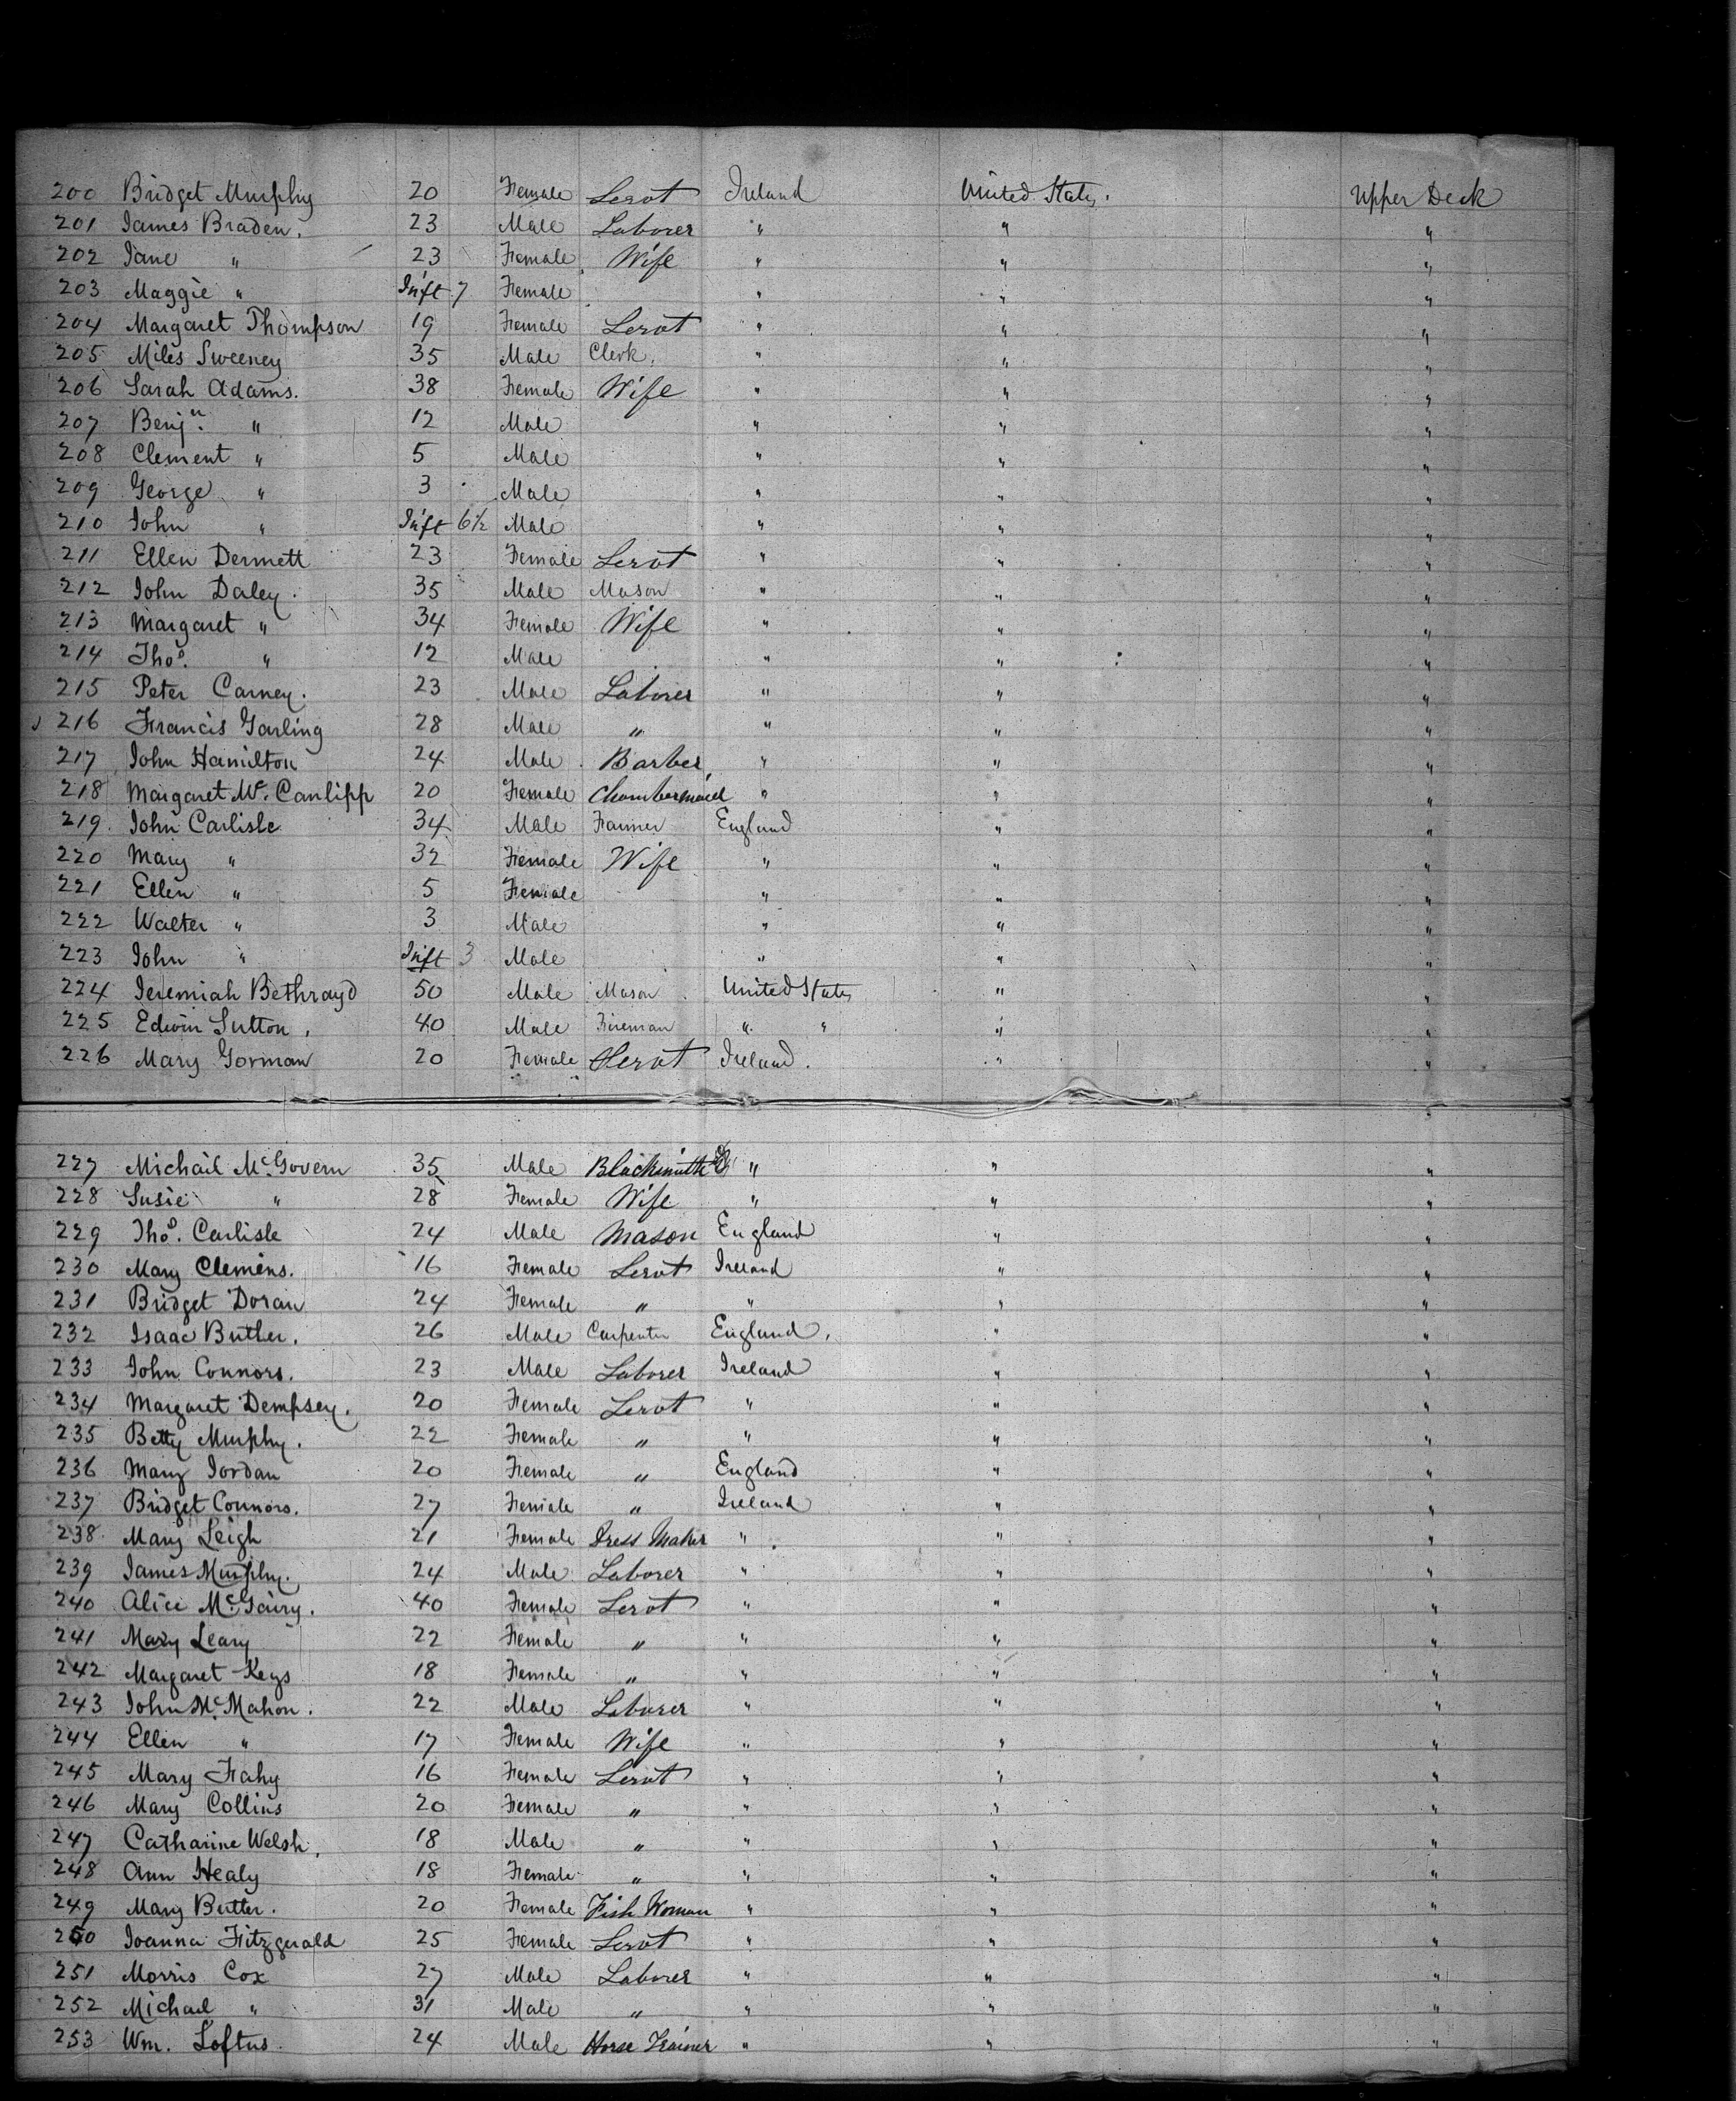 200 Bridget Murphy 20 Female Servt Ireland United States. Upper Deck
201 James Braden. 23 Male Laborer " " "
202 Jane " 23 Female Wife " " "
203 Maggie " Inft 7 Female " " "
204 Margaret Thompson 19 Female Servt " " "
205 Miles Sweeney 35 Male Clerk. " " "
206 Sarah Adams. 38 Female Wife " " "
207 Benjn. " 12 Male " " "
208 Clement " 5 Male " " "
209 George " 3 Male " " "
210 John " Inft 6½ Male " " "
211 Ellen Dermett 23 Female Servt " " "
212 John Daley. 35 Male Mason " " "
213 Margaret " 34 Female Wife " " "
214 Thos. " 12 Male " " "
215 Peter Carney. 23 Male Laborer " " "
216 Francis Garling 28 Male " " " "
217 John Hamilton 24 Male Barber " " "
218 Margaret Mc. Canlipp 20 Female Chambermaid " " "
219. John Carlisle 34 Male Farmer England " "
220 Mary " 32 Female Wife " " "
221 Ellen " 5 Female " " "
222 Walter " 3 Male " " "
223 John " Inft 3 Male " " "
224 Jeremiah Bethrayd 50 Male Mason United States " "
225 Edwin Sutton, 40 Male Fireman " " " "
226 Mary Gorman 20 Female Servt Ireland. " "
227 Michail Mc.Govern 35 Male Blacksmith " " "
228 Susie " 28 Female Wife " " "
229 Thos. Carlisle 24 Male Mason England " "
230 Mary Clemens. 16 Female Servt Ireland " "
231 Bridget Doran 24 Female " " " "
232 Isaac Butler. 26 Male Carpenter England, " "
233 John Connors. 23 Male Laborer Ireland " "
234 Margaret Dempsey. 20 Female Servt " " "
235 Betty Murphy. 22 Female " " " "
236 Mary Jordan 20 Female " England " "
237 Bridget Connors. 27 Female " Ireland " "
238. Mary Leigh 21 Female Dress Maker " " "
239 James Murphy. 24 Male Laborer " " "
240 Alice Mc.Gairy. 40 Female Servt " " "
241 Mary Leary 22 Female " " " "
242 Margaret Keys 18 Female " " " "
243 John Mc.Mahon. 22 Male Laborer " " "
244 Ellen " 17 Female Wife " " "
245 Mary Fahy 16 Female Servt " " "
246 Mary Collins 20 Female " " " "
247 Catharine Welsh, 18 Male " " " "
248 Ann Healy 18 Female " " " "
249 Mary Butler. 20 Female Fish Woman " " "
250 Joanna Fitzgerald 25 Female Servt " " "
251 Morris Cox 27 Male Laborer " " "
252 Michael " 31 Male " " " "
253 Wm. Loftus 24 Male Horse Trainer " " "